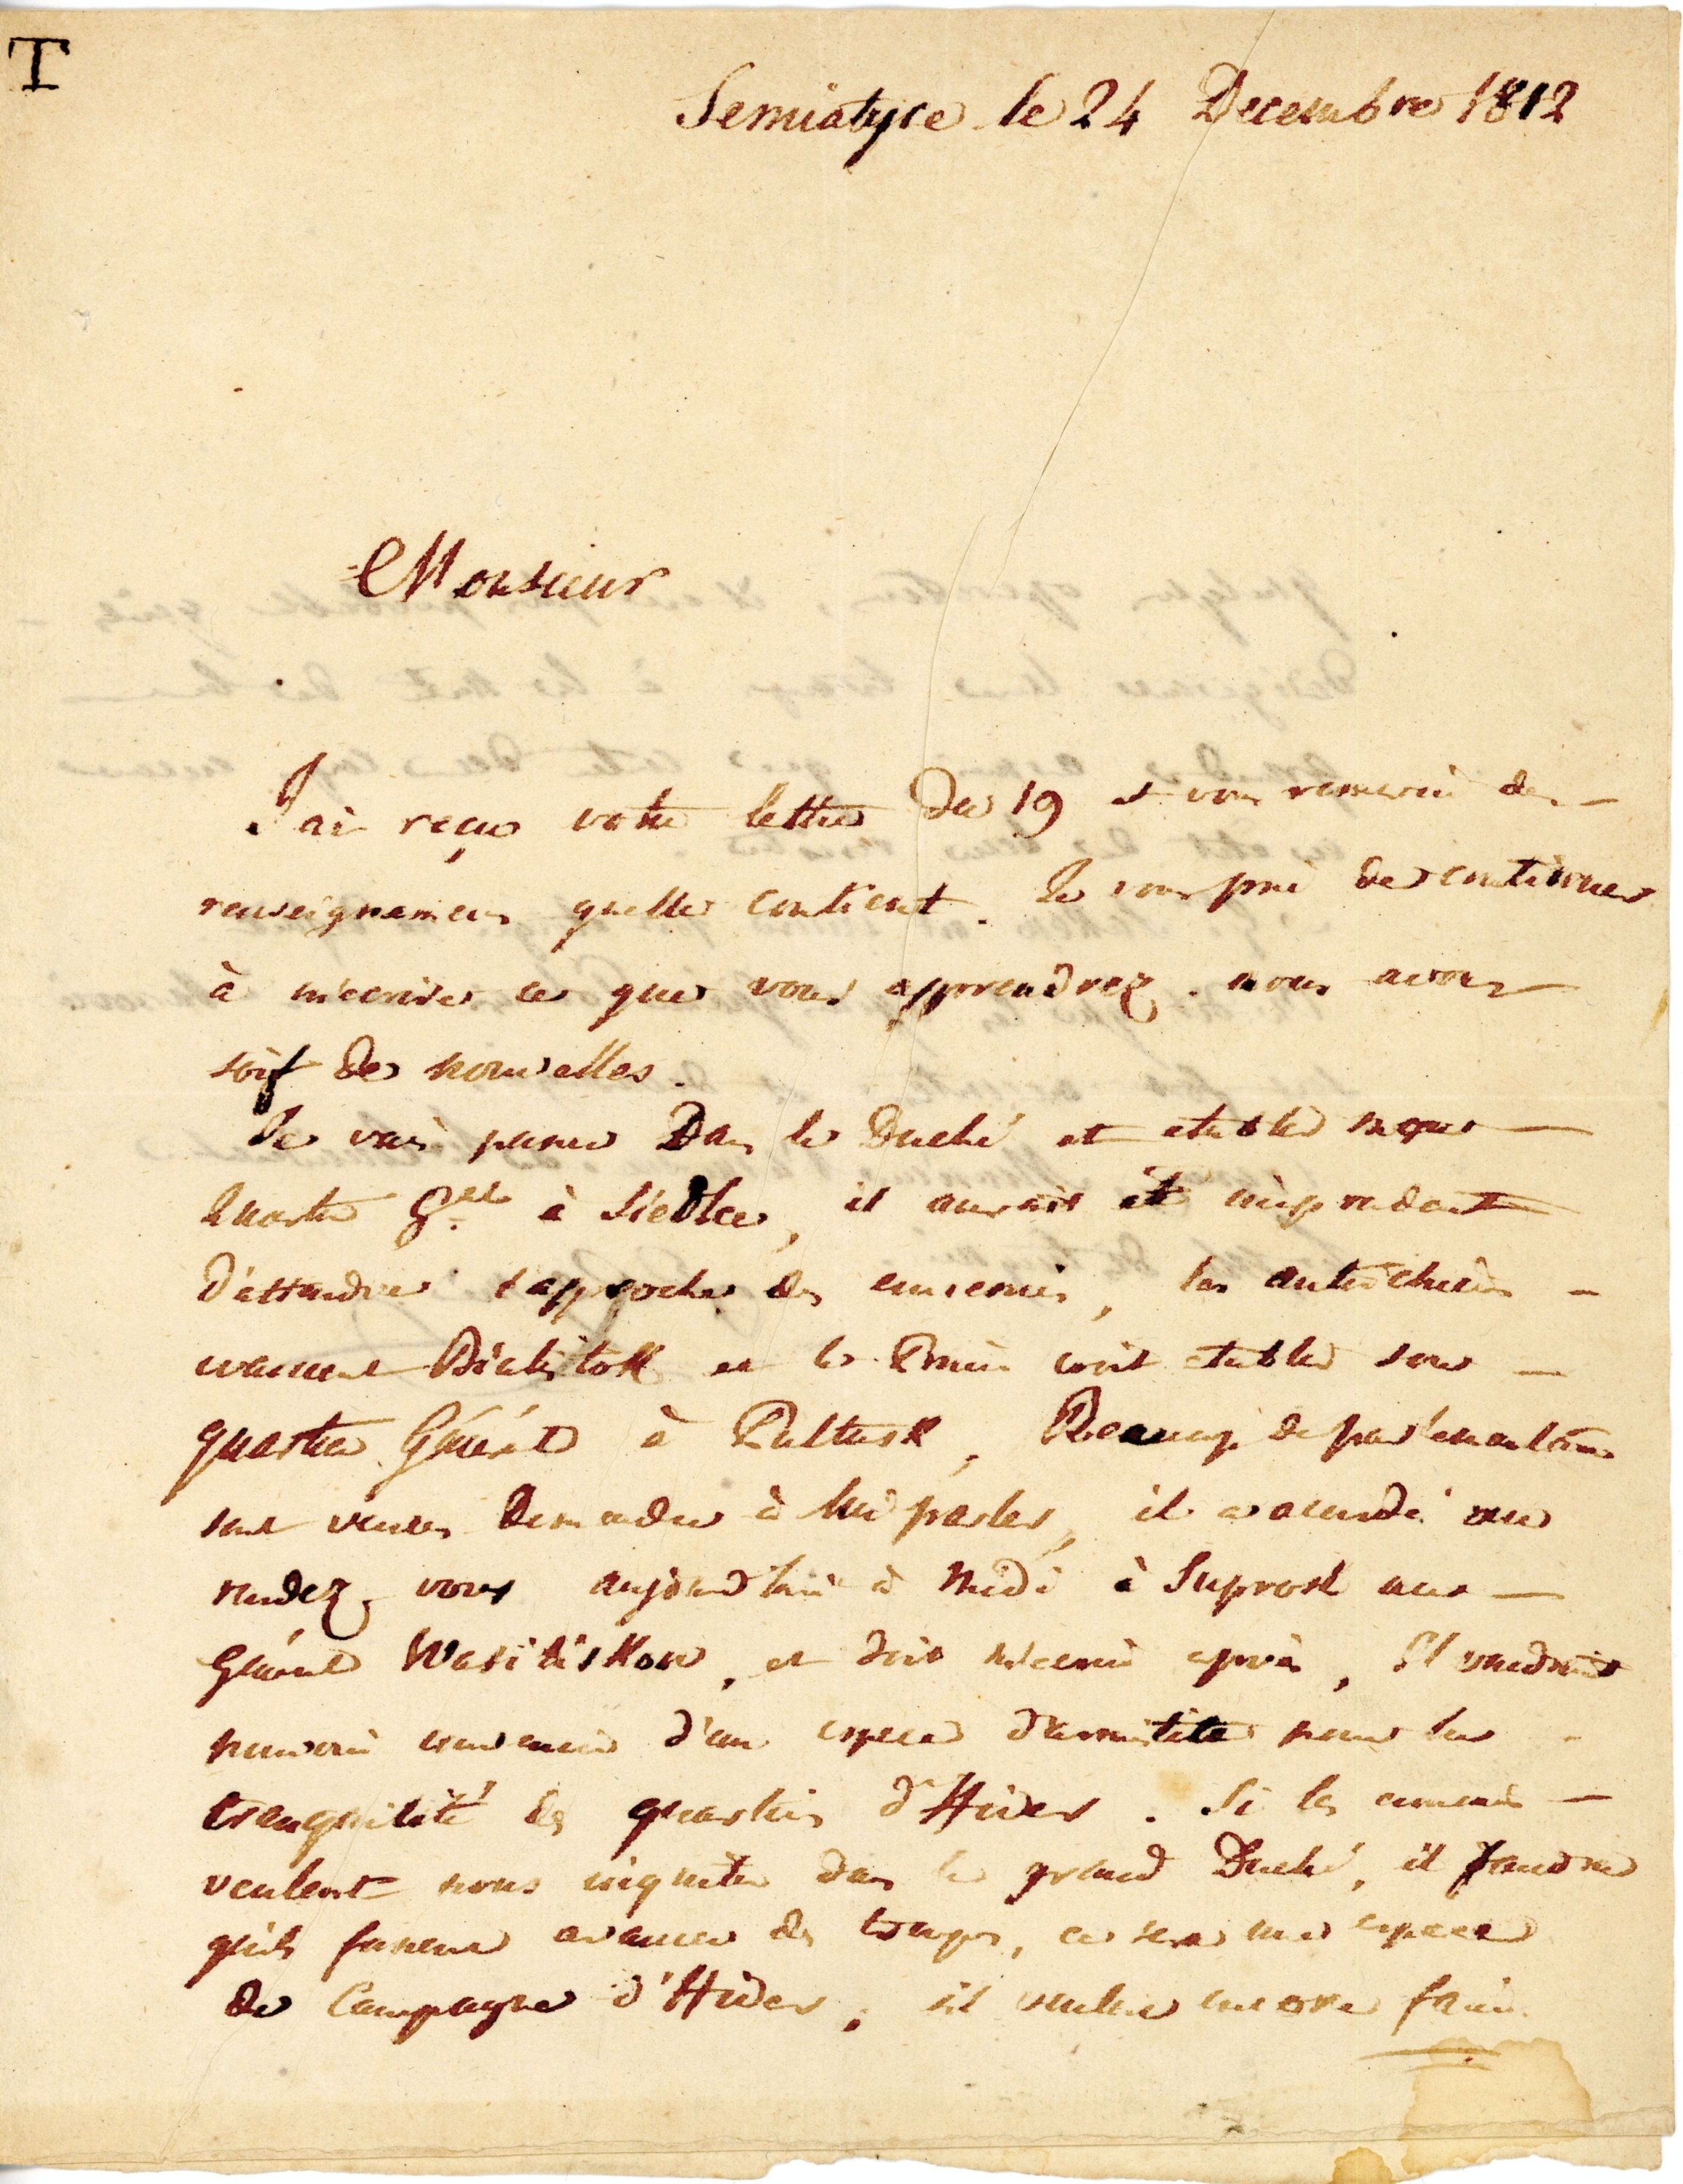 T
Semiatyce le 24 Decembre 1812
Monsieur
J'ai reçu votre lettre du 19 et vous remercie des
renseignemens quelle contient. Je vous prie de continuer
à m'ecrire ce que vous apprendrez. nous avons
soif de nouvelles.
Je vais passer Dans le Duché et etablir mon
quartier Gal à Siedlce, il aurait eté imprudent
D'attendre l'approche des ennemis, les autrichiens
evacuent Bialistok et le Prince doit etablir son
quartier Général à Pultusk, Beaucoup de parlementaires
sont venus Demander à lui parler, il a accordé un
rendez-vous aujourd'hui à Midi à Suprasl au
Général Wasiltschikow, et doit m'ecrire après, Il voudrait
pouvoir convenir d'un espece d'armistice pour la
tranquilité des quartiers d'Hiver. Si les ennemis
veulent nous inquieter dans le grand Duché, il faudra
qu'ils fassent avancer des troupes, ce sera une espece
de Campagne d'Hiver, s'il veulent encore faire